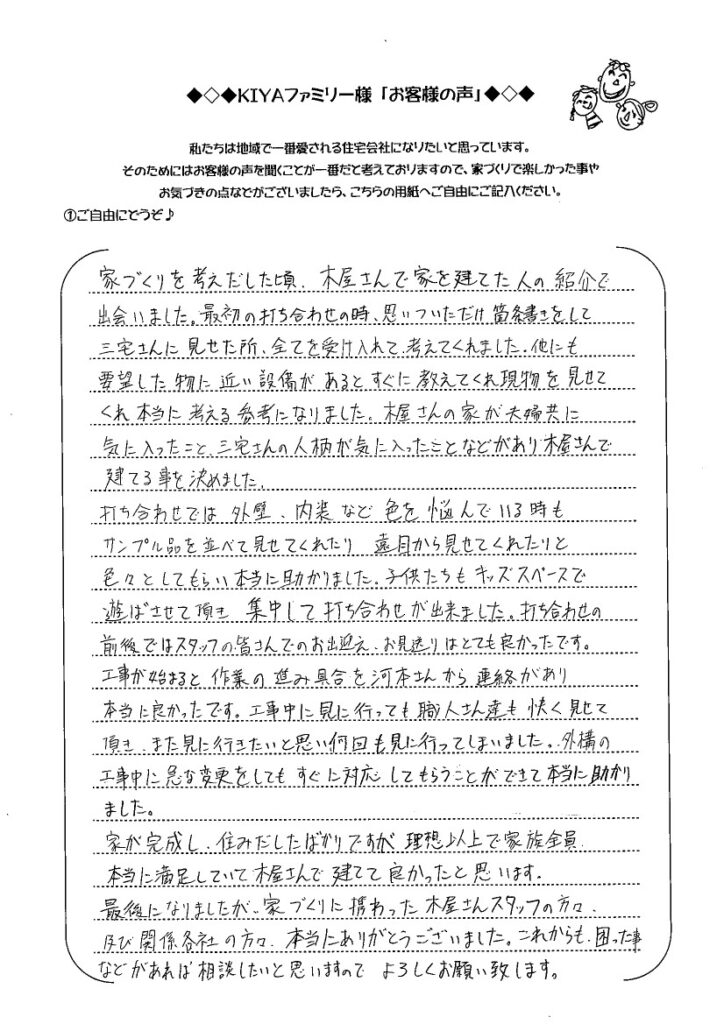 ◆◇◆KIYAファミリー様「お客様の声」◆◇◆
私たちは地域で一番愛される住宅会社になりたいと思っています。
そのためにはお客様の声を聞くことが一番だと考えておりますので、家づくりで楽しかった事や
お気づきの点などがございましたら、こちらの用紙へご自由にご記入ください。
①ご自由にどうぞ♪
家づくりを考えだした頃、木屋さんで家を建てた人の紹介で
出会いました。最初の打ち合わせの時、思いついただけ箇条書きをして
三宅さんに見せた所、全てを受け入れて、考えてくれました。他にも
要望した物に近い設備があるとすぐに教えてくれ現物を見せて
くれ本当に考える参考になりました。木屋さんの家が夫婦共に
気に入ったこと、三宅さんの人柄が気に入ったことなどがあり木屋さんで
建てる事を決めました。
打ち合わせでは外壁、内装など色を悩んでいる時も
サンプル品を並べて見せてくれたり 遠目から見せてくれたりと
色々としてもらい本当に助かりました。子供たちもキッズスペースで
遊ばさせて頂き 集中して打ち合わせが出来ました。打ち合わせの
前後ではスタッフの皆さんでのお出迎え、お見送りはとても良かったです。
工事が始まると作業の進み具合を河本さんから連絡があり
本当に良かったです。工事中に見に行っても職人さん達も快く見せて
頂き、また見に行きたいと思い何回も見に行ってしまいました。外構の
工事中に急な変更をしてもすぐに対応してもらうことができて本当に助かり
ました。
家が完成し、住みだしたばかりですが、理想以上で家族全員
本当に満足していて木屋さんで建てて良かったと思います。
最後になりましたが、家づくりに携わった木屋さんスタッフの方々、
及び関係各社の方々、本当にありがとうございました。これからも、困った事
などがあれば相談したいと思いますので よろしくお願い致します。